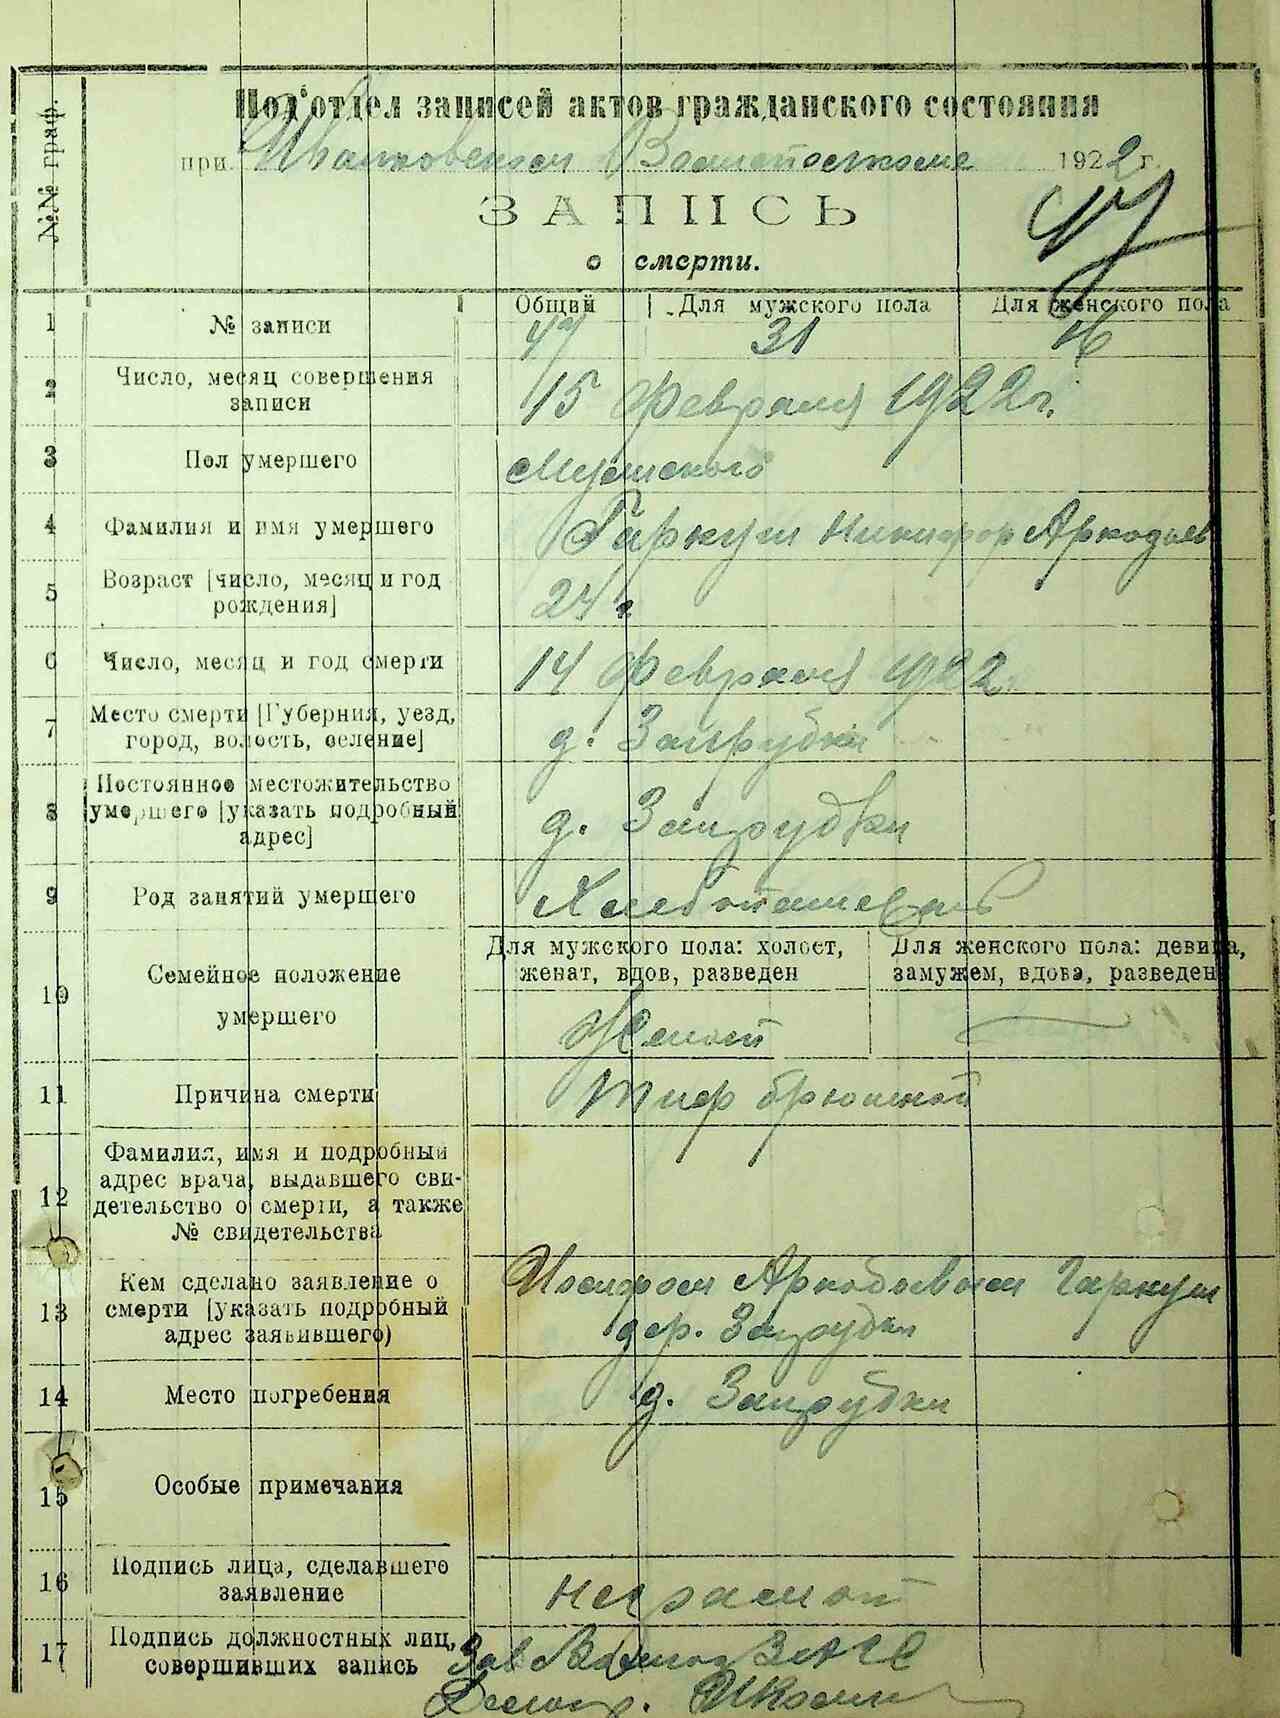 №№ граф.
Под'отдел записей актов гражданского состояния
при 1922 г.
47
ЗАПИСЬ
о смерти.
Общий Для мужского пола Для женского пола
1 № записи 47 31 16
2 Число, месяц совершения
записи 15 Февраля 1922 г.
3 Пол умершего Мужского
4 Фамилия и имя умершего Гаркуш Никифор Аркадьев
5 Возраст [число, месяц и год
рождения] 24 г
6 Число, месяц и год смерти 14 Февраля 1922
7 Место смерти [Губерния, уезд,
город, волость, селение] д. Запрудки
8 Постоянное местожительство
умершего [указать подробный
адрес] д. Запрудки
9 Род занятий умершего Хлебопашец
Для мужского пола: холост,
женат, вдов, разведен
Для женского пола: девица,
замужем, вдова, разведен
10 Семейное положение
умершего Женат
11 Причина смерти Тиф брюшной
12 Фамилия, имя и подробный
адрес врача, выдавшего сви-
детельство о смерти, а также
№ свидетельства
13 Кем сделано заявление о
смерти [указать подробный
адрес заявившего) Иосифом Аркадьевым Гаркуш
дер. Запрудки
14 Место погребения д. Запрудки
15 Особые примечания
16 Подпись лица, сделавшего
заявление неграмот
17 Подпись должностных лиц,
совершивших запись Зав ЗАГС